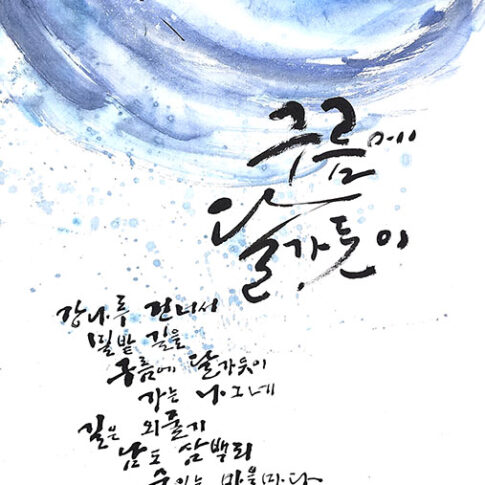 구름에
달가듯이
강나루 건너서
밀밭 길을
구름에 달가듯이
가는 나그네
길은 외줄기
남도 삼백리
마을마다